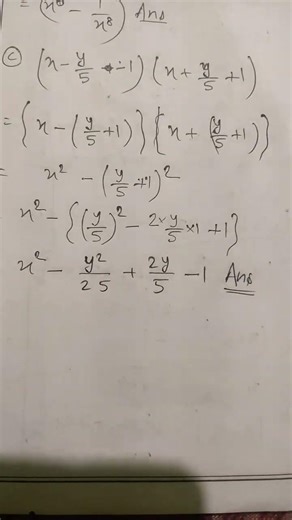 = (x⁸ - 1/x⁸) Ans
(c) (x - y/5 - 1) (x + y/5 + 1)
= {x - (y/5 + 1)} {x + (y/5 + 1)}
= x² - (y/5 + 1)²
x² - {(y/5)² - 2 × y/5 × 1 + 1}
x² - y²/25 + 2y/5 - 1 Ans